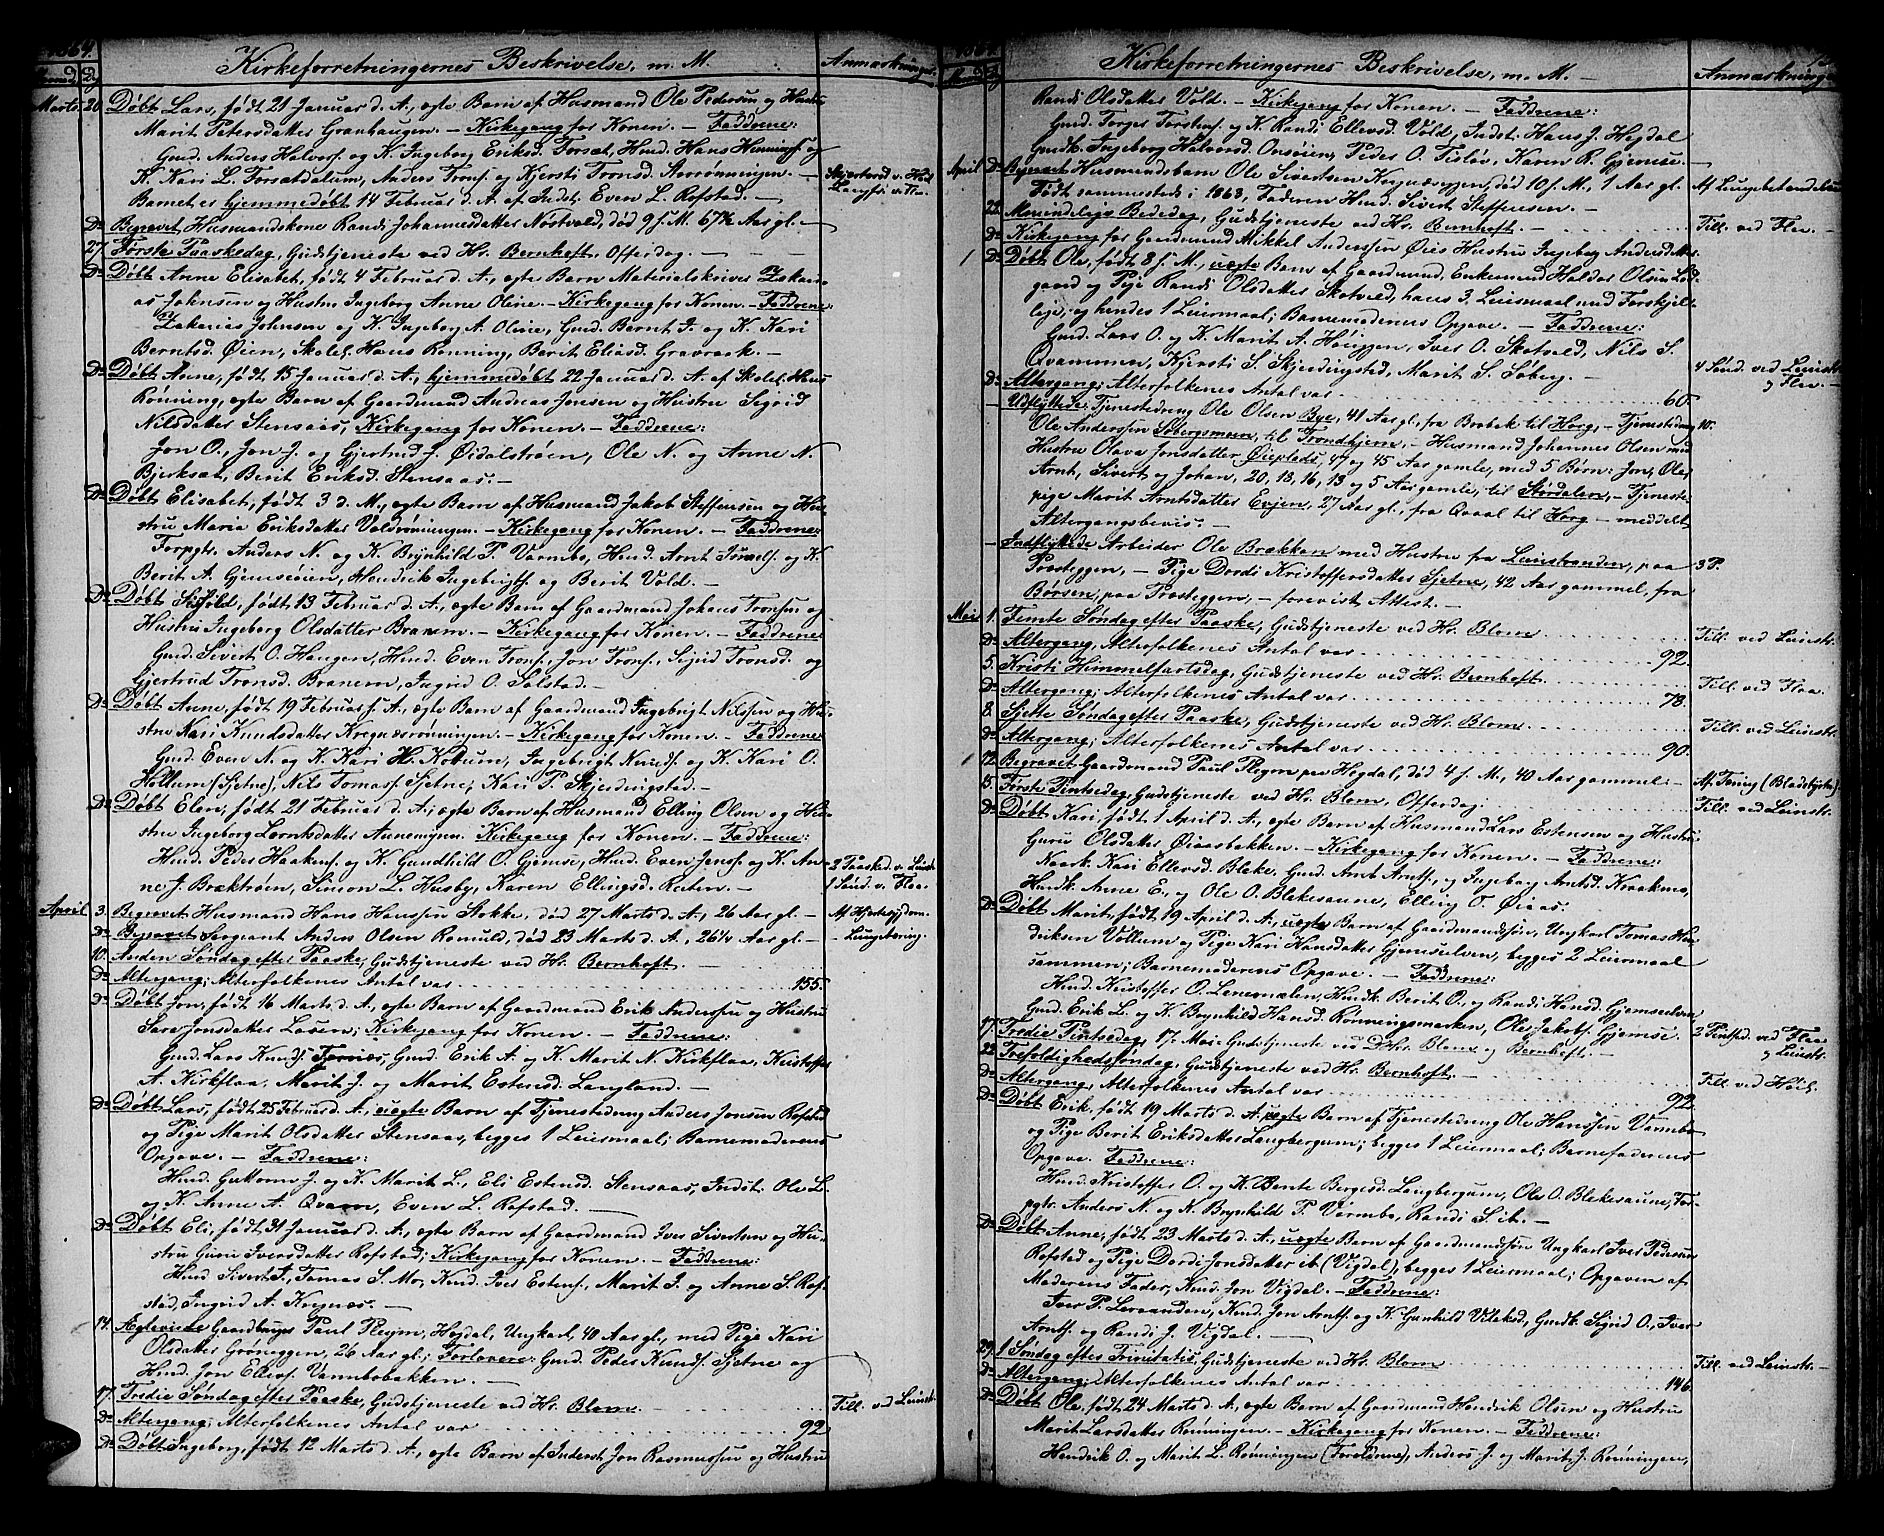 1864.
Kirkeforretningernes Beskrivelse, m. M.
Anmærkninger.
Marts 20. Døbt Lars, født 21 Januar d. A., ægte Barn af Husmand Ole Pedersen og Hustru
Marit Petersdatter Granhaugen. – Kirkegang for Konen. – Fadderne:
Gmd. Anders Halvors. og K. Ingeborg Eriksd. Forsæt, Hmd. Hans Hennings. og
K. Kari L. Forsætdalum, Anders Trons. og Kjersti Tronsd. Storrønningen. –
Barnet er hjemmedøbt 14 Februar d. A. af Indst. Even L. Rofstad. –
Do Begravet Husmandskone Randi Johannesdatter Nøstvold, død 9 f. M. 67¾ Aar gl. –
27. Første Paaskedag, Gudstjeneste ved Hr. Bernhoft. Offerdag. –
Do Døbt Anne Elisabet, født 4 Februar d. A., ægte Barn Materialskriver Zakari-
as Johnsen og Hustru Ingeborg Anne Oline. – Kirkegang for Konen. – Fadderne:
Zakarias Johnsen og K. Ingeborg A. Oline, Gmd. Bernt J. og K. Kari
Berntsd. Øien, Skolel. Hans Rønning, Berit Eliasd. Gravraak. –
Do Døbt Anne, født 15 Januar d. A., hjemmedøbt 22 Januar d. A. af Skolel. Hans
Rønning, ægte Barn af Gaardmand Andreas Jonsen og Hustru Sigrid
Nilsdatter Stensaas, Kirkegang for Konen. – Fadderne:
Jon O., Jon J. og Gjertrud J. Øidalstrøen, Ole N. og Anne N.
Bjerksæt, Berit Eriksd. Stensaas. –
Do Døbt Elisabet, født 3 d. M., ægte Barn af Husmand Jakob Steffensen og Hu-
stru Maria Eriksdatter Voldrønningen. – Kirkegang for Konen. – Fadderne:
Forpgtr. Anders N. og K. Brynhild P. Varmbo, Hmd. Arnt og K.
Berit A. Gjemsøien, Hendrik Ingebrigts. og Berit Vold. –
Do Døbt født 13 Februar d. A., ægte Barn af Gaardmand Johans Tronsen og
Hustru Ingeborg Olsdatter Branem. – Kirkegang for Konen. – Fadderne
Gmd. Sivert O. Haugen, Hmd. Even Trons., Jon Trons., Sigrid Tronsd. og
Gjertrud Tronsd. Branem, Ingrid O. Solstad. –
Do Døbt Anne, født 19 Februar f. A., ægte Barn af Gaardmand Ingebrigt Nilssen og Hu-
stru Kari Knudsdatter Kregnæsrønningen. – Kirkegang for Konen. – Fadderne
Gmd. Even N. og K. Kari Ingebrigt Knuds. og K. Kari O.
Hollum (Sjetne), Nils Tomass. Sjetne, Kari P. Skjerdingstad. –
Do Døbt Elen, født 21 Februar d. A., ægte Barn af Husmand Elling Olsen og Hu-
stru Ingeborg Lorntsdatter Kirkegang for Konen. – Fadderne:
Hmd. Peder Haakens. og K. Gundhild O. Gjemse, Hmd. Even Jens. og K. An-
ne J. Bræktrøen, Simon L. Husby, Karen Ellingsd. Reiten. –
2 Paasked. v. Leinstr.
1 Sønd. v. Flaa.
April 3. Begravet Husmand Hans Hanssen Stokke, død 27 Marts d. A., 26 Aar gl. – Af Hjertesygdom.
Do Begravet Sergeant Anders Olsen Romuld, død 23 Marts d. A., 26¼ Aar gl. –
10. Anden Søndag efter Paaske, Gudstjeneste ved Hr. Bernhoft. –
Do Altergang; Alterfolkenes Antal var 155.
Do Døbt Jon, født 16 Marts d. A., ægte Barn af Gaardmand Erik Anderssen og Hustru
Sara Jonsdatter Kirkegang for Konen. – Fadderne:
Gmd. Lars Knuds. Gmd. Erik A. og K. Marit N. Kirkflaa, Kristoffer
A. Kirkflaa, Marit J. og Marit Estensd. Langland. –
Do Døbt Lars, født 25 Februar d. A., uægte Barn af Tjenestedreng Anders Jonsen Rofstad
og Pige Marit Olsdatter Stensaas, begges 1 Leiermaal; Barnemoderens
Opgave. – Fadderne:
Hmd. Guttorm J. og K. Marit L., Eli Estensd. Stensaas, Indst. Ole L.
og K. Anne A. Qvam, Even L. Rofstad. –
Do Døbt Eli, født 31 Januar d. A., ægte Barn af Gaardmand Iver Sivertsen og Hu-
stru Guru Iversdatter Rofstad; Kirkegang for Konen. – Fadderne:
Hmd. Sivert I., Tomas S. Mo, Gmd. Iver Estens., Marit I. og Anne S. Rof-
stad, Ingrid A. Kregnæs. –
14. Ægteviede Gaardbruger Paul Plejm, Hegdal, Ungkarl, 40 Aar gl., med Pige Kari
Olsdatter Grøneggen, 26 Aar gl.; Forlovere: Gmd. Peder Knuds. Sjetne og
Hmd. Jon Ellevs. Varmbobakken. –
17. Tredie Søndag efter Paaske, Gudstjeneste ved Hr. Blom. Till. ved Leinstr.
Do Altergang; Alterfolkenes Antal var 92
Do Døbt Ingeborg, født 12 Marts d. A., ægte Barn af Inderst Jon Rasmussen og Hustru
Kirkeforretningernes Beskrivelse, m. M. –
Anmærkninger
Randi Olsdatter Vold. – Kirkegang for Konen. – Fadderne:
Gmd. Torger Torstens. og K. Randi Ellevsd. Vold, Indst. Hans J. Hegdal
Gmdk. Ingeborg Halvorsd. Onsøien, Peder O. Tisløv, Karen R. Gjemse. –
April Do Begravet Husmandsbarn Ole Sivertsen død 10 f. M., 1 Aar gl. Af Lungebetændelse
Født sammesteds i 1863, Faderen Hmd. Sivert Steffensen. –
22. Almindelig Bededag, Gudstjeneste ved Hr. Bernhoft. – Till. ved Flaa. –
Do Kirkegang for Gaardmand Mikkel Anderssen Øies Hustru Ingeborg Andersdatter.
Do Døbt Ole, født 8 f. M., uægte Barn af Gaardmand, Enkemand Haldor Olsen Lød-
gaard og Pige Randi Olsdatter Skotvold, hans 3. Leiermaal med Forskjel-
lige, og hendes 1 Leiermaal; Barnemoderens Opgave. – Fadderne:
Gmd. Lars O. og K. Marit A. Høiggen, Iver O. Skotvold, Nils S.
Qvammen, Kjersti S. Skjerdingstad, Marit S. Søberg. –
Do Altergang; Alterfolkenes Antal var 60.
4 Sønd. ved Leinstr.
og Flaa. –
Udflyttede: Tjenestedreng Ole Olsen Bye, 41 Aar gl., fra Borbak til Horg, – Tjenestedreng
Ole Anderssen Søbergsmoen, til Trondhjem, – Husmand Johannes Olsen med
Hustru Olava Jonsdatter Øieplads, 47 og 45 Aar gamle, med 5 Børn: Jon, Ole,
Arnt, Sivert og Johan, 20, 18, 16, 13 og 5 Aar gamle, til Størdalen, – Tjeneste-
pige Marit Arntsdatter Evjen, 27 Aar gl., fra Qvaal til Horg – meddelt
Altergangsbevis. –
Indflyttede Arbeider Ole Brækken med Hustru fra Leinstranden, paa
Trøeggen, – Pige Dordi Kristoffersdatter Sjetne, 42 Aar gammel, fra
Børsen, paa Trøeggen, – forevist Attest. –
Mai 1. Femte Søndag efter Paaske, Gudstjeneste ved Hr. Blom Till. ved Leinstr.
Do Altergang, Alterfolkenes Antal var 92.
5. Kristi Himmelfartsdag, Gudstjeneste ved Hr. Bernhoft Till. ved Flaa.
Do Altergang; Alterfolkenes Antal var 78.
8. Sjette Søndag efter Paaske, Gudstjeneste ved Hr. Blom Till. ved Leinstr.
Do Altergang; Alterfolkenes Antal var 90.
12. Begravet Gaardmand Paul Plejm paa Hegdal, død 4 f. M., 40 Aar gammel. – Af Tæring
15. Første Pintsedag, Gudstjeneste ved Hr. Blom, Offerdag. Till. ved Leinstr.
Do Døbt Kari, født 1 April d. A., ægte Barn af Husmand Lars Estensen og Hustru
Guru Olsdatter Øiaasbakken. – Kirkegang for Konen. – Fadderne:
Kari Ellevsd. Bleke, Gmd. Arnt Arnts., og Ingeborg Arntsd. Kraaknes,
Hmdk. Anne E., og Ole O. Blekesaune, Elling O. Øiaas.
Do Døbt Marit, født 19 April d. A., uægte Barn af Gaardmandssøn, Ungkarl Tomas Hen-
driksen Vollum og Pige Kari Hansdatter Gjemselven, begges 2 Leiermaal
sammen; Barnemoderens Opgave. – Fadderne:
Hmd. Kristoffer O. Hmdk. Berit O., og Randi Hansd. Gjemselven
Gmd. Erik L. og K. Brynhild Hansd. Rønningsmarken, Ole Jakobs. Gjemse. –
17. Tredie Pintsedag, 17 Mai Gudstjeneste ved Hr. Blom og Bernhoft. – 2 Pintsed. ved Flaa
og Leinstr.
22. Trefoldighedssøndag, Gudstjeneste ved Hr. Bernhoft. – Till. ved Høil.
Do Altergang, Alterfolkenes Antal var 92
Do Døbt Erik, født 19 Marts d. A. uægte Barn af Tjenestedreng Ole Hanssen Varmbo
og Pige Berit Eriksdatter Langbergum; begges 1 Leiermaal; Barnefaderens
Opgave. Fadderne:
Hmd. Kristoffer O. og K. Bente Bergesd. Langbergum, Ole O. Blekesaune, For-
pgtr. Anders N. og K. Brynhild P. Varmbo, Randi S. ib. –
Do Døbt Anne, født 23 Marts d. A., uægte Barn af Gaardmandssøn Ungkarl Iver Pedersen
Rofstad og Pige Dordi Jonsdatter ib. (Vigdal), begges 1 Leiermaal; Opgaven af
Moderens Fader, Gmd. Jon Vigdal. – Fadderne:
Iver P. Leraanden, Gmd. Jon Arnts. og K. Gunhild Gmdk. Sigrid O., Iver
Arnts. og Randi J. Vigdal. –
29. 1 Søndag efter Trinitatis, Gudstjeneste ved Hr. Blom Till. ved Leinstr. –
Do Altergang; Alterfolkenes Antal var 146.
Do Døbt Ole, født 24 Marts d. A., ægte Barn af Gaardmand Hendrik Olsen og Hustru
Marit Larsdatter Rønningen. – Kirkegang for Konen. – Fadderne:
Hendrik O. og Marit L. Rønningen (Forældrene), Anders J. og Marit J. Rønningen,